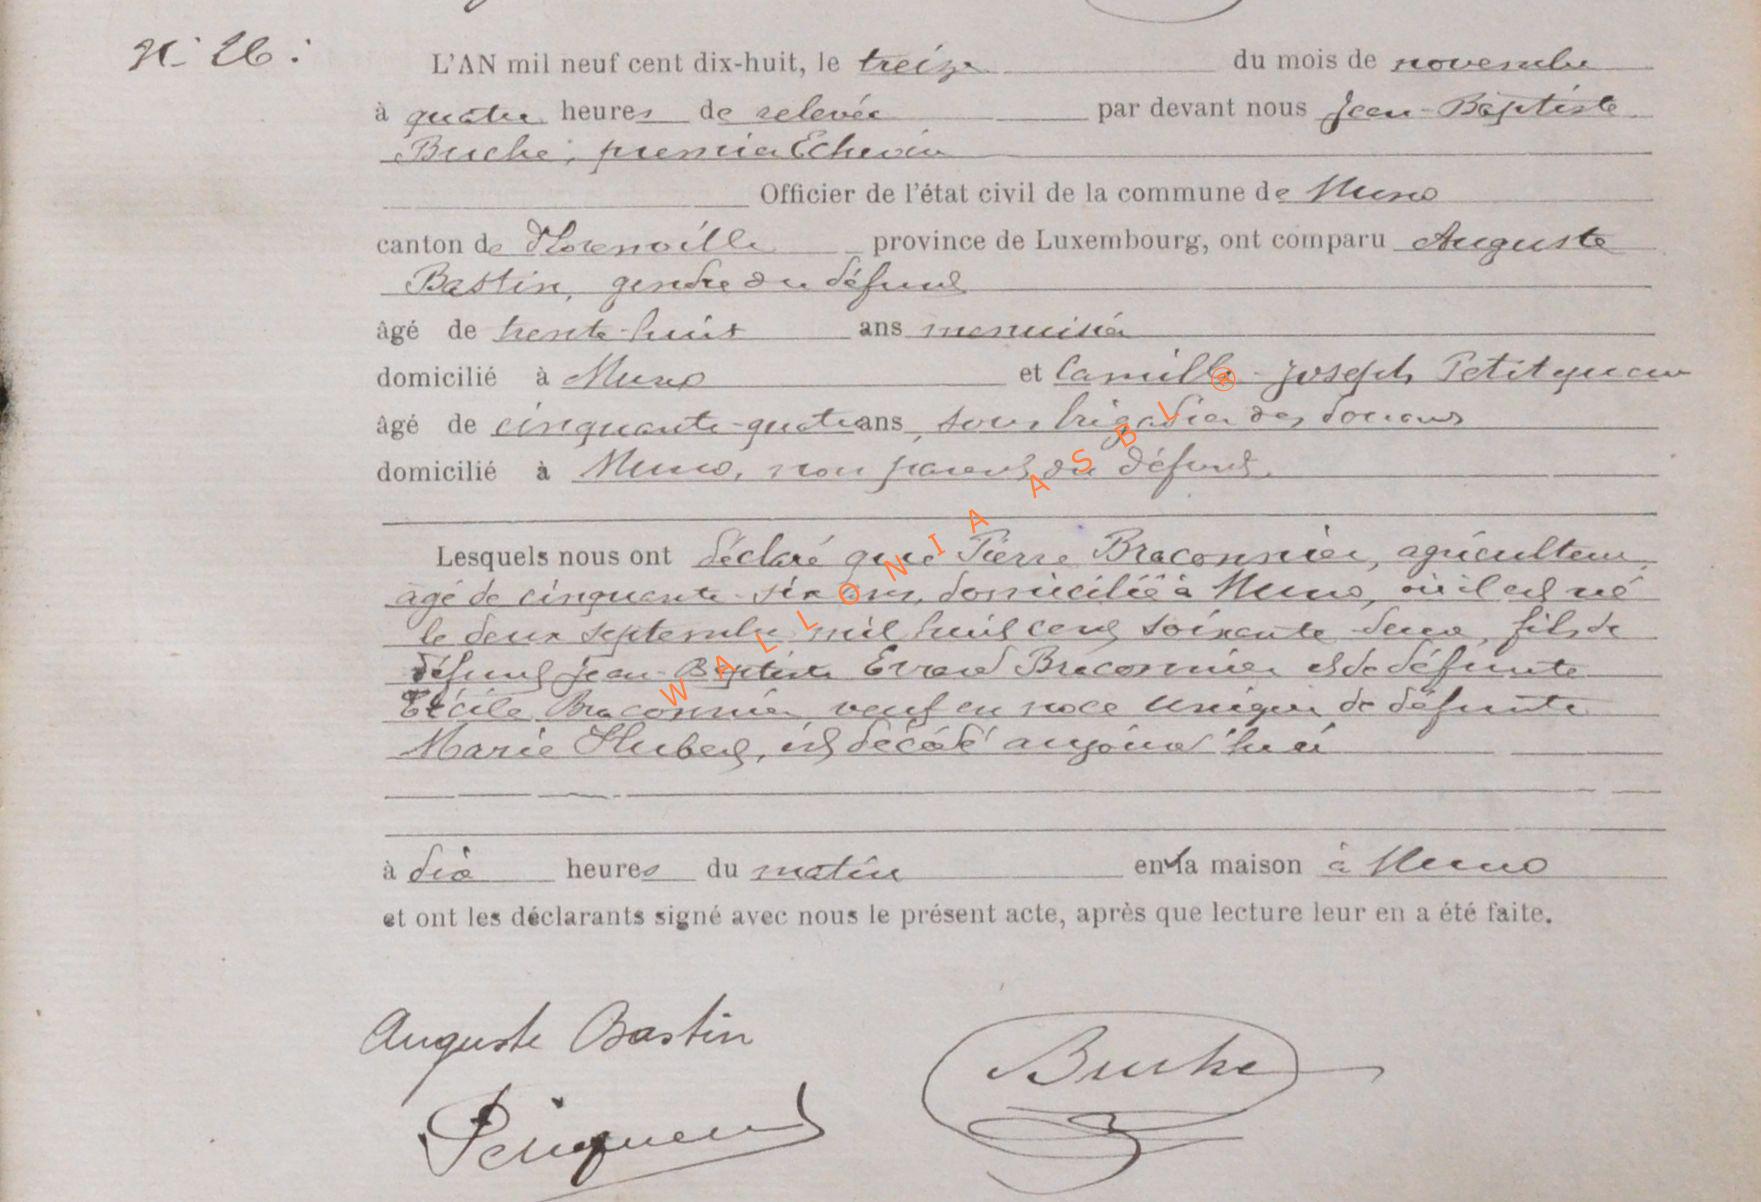 N: 26:
L'AN mil neuf cent dix-huit, le treize du mois de novembre
à quatre heures de relevée par devant nous Jean-Baptiste
Buche, premier Echevin
Officier de l'état civil de la commune de Muno
canton de Florenville province de Luxembourg, ont comparu Auguste
Bastin, gendre du défunt
âgé de trente-huit ans menuisier
domicilié à Muno et Camille-Joseph Petitqueux
âgé de cinquante-quatre ans, sous brigadier des douanes
domicilié à Muno, non parent du défunt.
Lesquels nous ont déclaré que Pierre Braconnier, agriculteur,
âgé de cinquante-six ans, domicilié à Muno, où il est né
le deux septembre mil huit cent soixante deux, fils de
défunt Jean-Baptiste Evrard Braconnier et de défunte
Cécile Braconnier, veuf en noce unique de défunte
Marie Hubert, est décédé aujourd'hui
à dix heures du matin en la maison à Muno
et ont les déclarants signé avec nous le présent acte, après que lecture leur en a été faite.
Auguste Bastin
Buche
WALLONIA ASBL ®